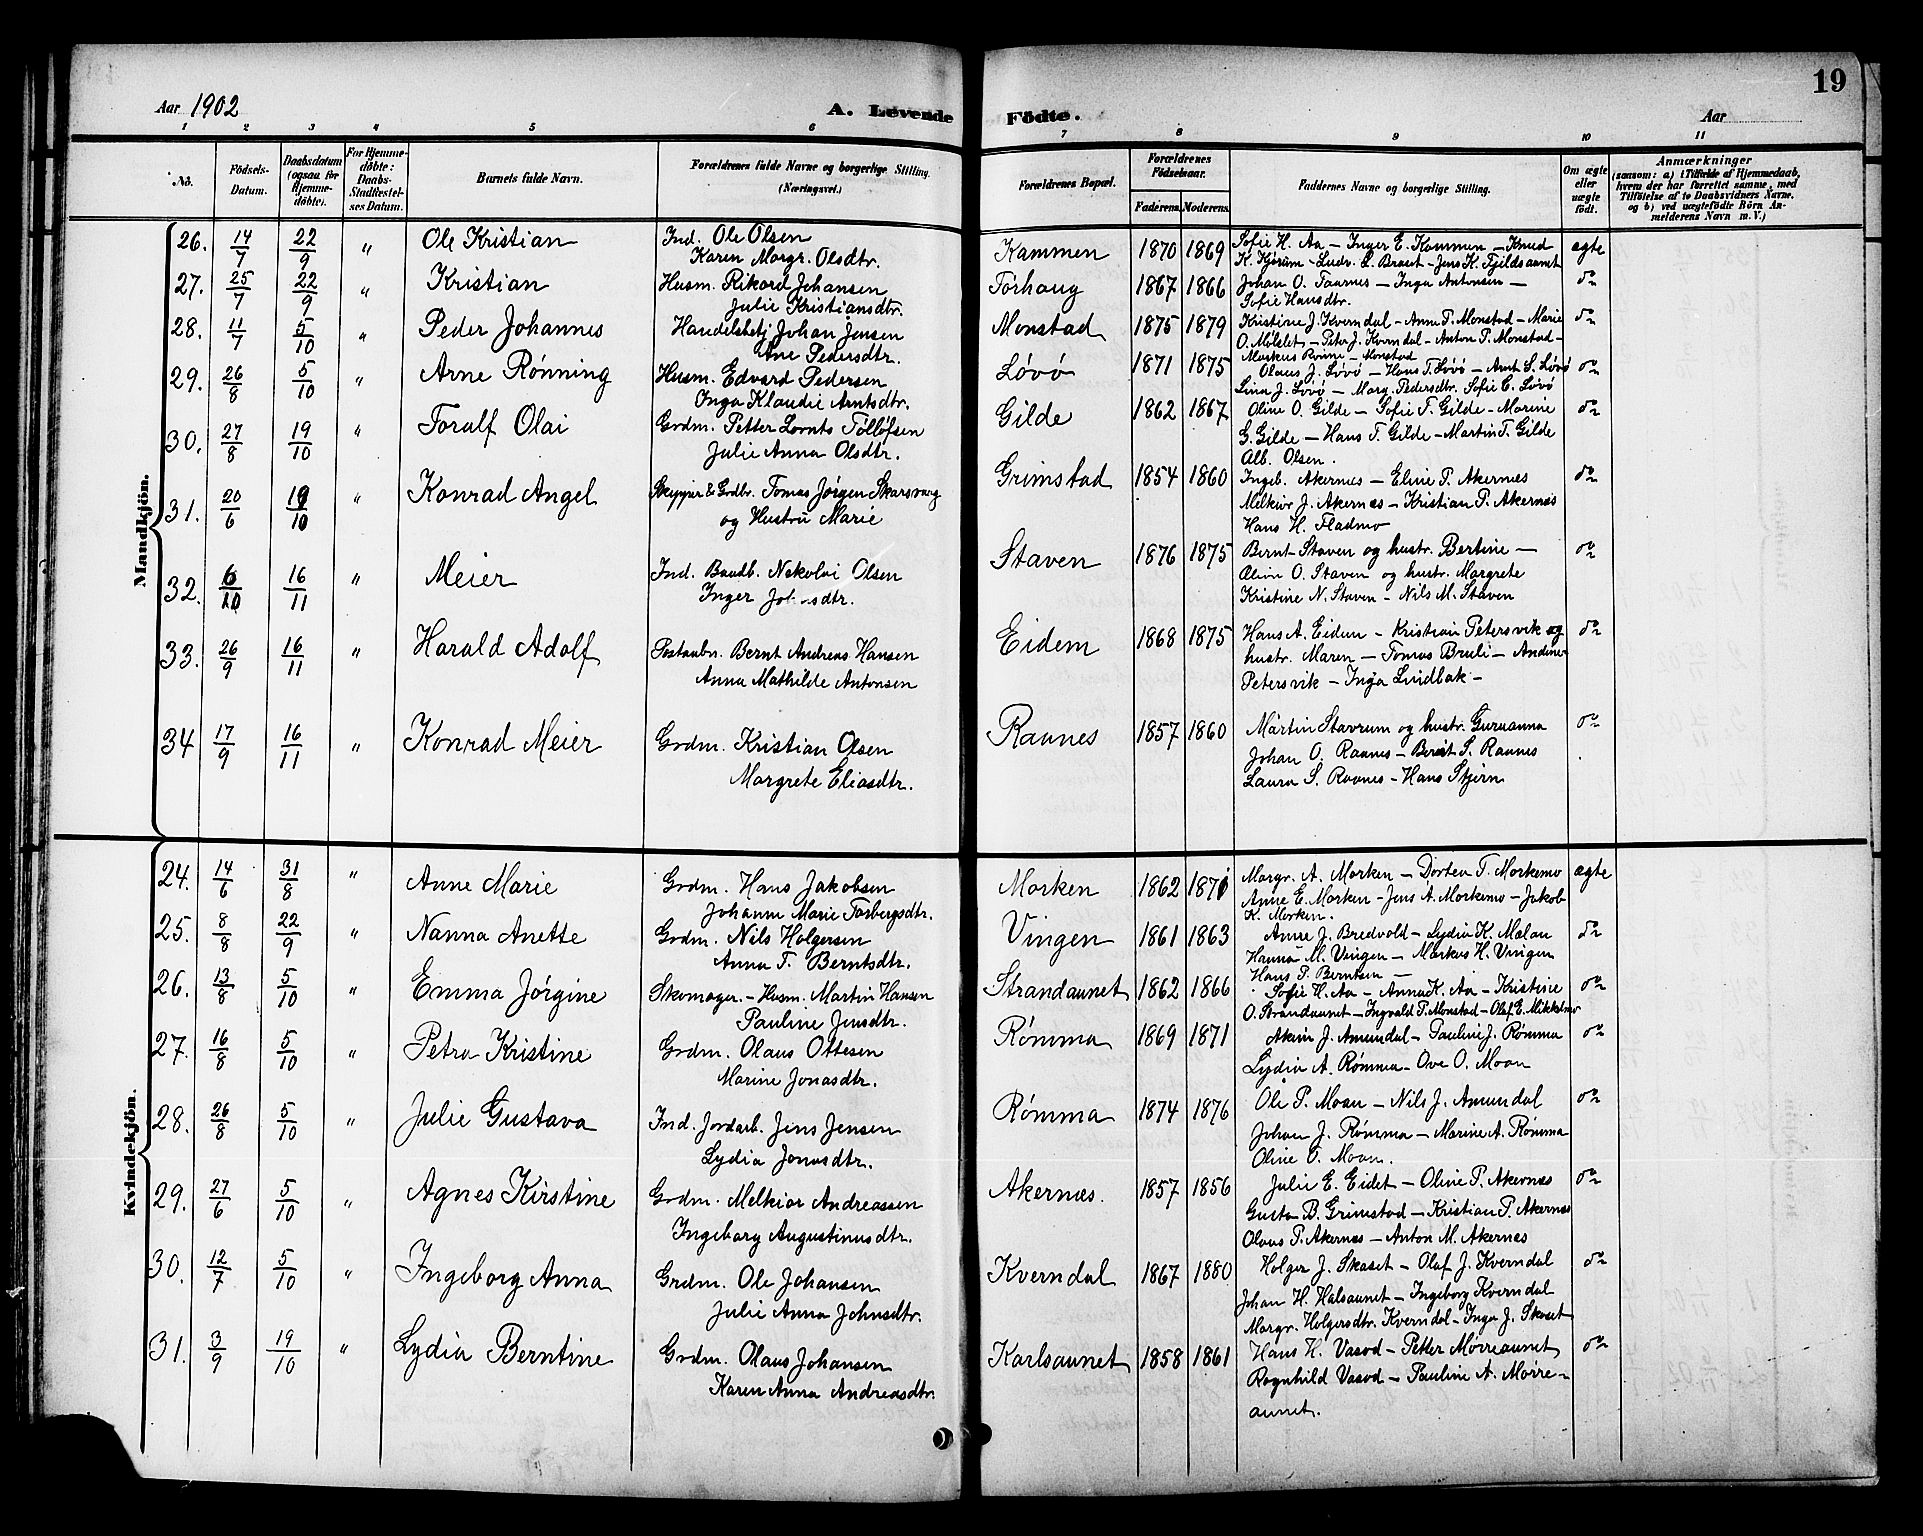 Aar 1902
A. Levende
Födte.
Aar
19
1 2 3 4 5 6 7 8 9 10 11
No.
Födsels-
Datum.
Daabsdatum
(ogsaa for
Hjemme-
döbte).
For Hjemme-
döbte:
Daabs-
Stadfæstel-
ses Datum.
Barnets fulde Navn.
Forældrenes fulde Navne og borgerlige Stilling.
(Næringsvei.)
Forældrenes Bopæl.
Forældrenes
Födselsaar.
Faderens. Moderens.
Faddernes Navne og borgerlige Stilling.
Om ægte
eller
uægte
födt.
Anmærkninger
(saasom: a) i Tilfælde af Hjemmedaab,
hvem der har forrettet samme, med
Tilföielse af to Daabsvidners Navne,
og b) ved uægtefödte Börn An-
melderens Navn m. V.)
Mandkjön.
26. 14/7 22/9 " Ole Kristian Ind. Ole Olsen
Karen Margr. Olsdtr.
Kammen 1870 1869 Sofie H. Aa – Inger E. Kammen – Knud
K. Kjørum – Ludv. L. Braset – Jens K. Fjeldsaunet
ægte
27. 25/7 22/9 " Kristian Husm. Rikard Johansen
Julie Kristiansdtr.
Tørhaug 1867 1866 Johan O. Taarnes – Inga Antonsen –
Sofie Hansdtr.
do
28. 11/7 5/10 " Peder Johannes Handelsbetj Johan Jensen
Ane Pedersdtr.
Monstad 1875 1879 Kristine J. Kverndal – Anne P. Monstad – Marie
O. Mølslet – Peter J. Kverndal – Anton P. Monstad –
Markus Rønne – Monstad
do
29. 26/8 5/10 " Arne Rønning Husm. Edvard Pedersen
Inga Klaudie Arntsdtr.
Løvø 1871 1875 Olaus J. Løvø – Hans T. Løvø – Arnt S. Løvø
Lina J. Løvø – Marg. Pedersdtr. Sofie C. Løvø
do
30. 27/8 19/10 " Toralf Olai Grdm. Petter Lornts Tøllofsen
Julie Anna Olsdtr.
Gilde 1862 1867 Oline O. Gilde – Sofie T. Gilde – Marine
G. Gilde – Hans T. Gilde – Martin T. Gilde
Alb. Olsen.
do
31. 20/6 19/10 " Konrad Angel Skipper & Grdbr. Tomas Jørgen Skarsvaag
og Hustru Marie
Grimstad 1854 1860 Ingeb. Akernes – Eline P. Akernes
Melkior J. Akernes – Kristian P. Akernes
Hans H. Fladmo
do
32. 6/10 16/11 " Meier Ind. Baadb. Nekolai Olsen
Inger dtr.
Staven 1876 1875 Bernt Staven og hustr. Bertine –
Alion O. Staven og hustr. Margrete
Kristine N. Staven – Nils M. Staven
do
33. 26/9 16/11 " Harald Adolf Postaabn. Bernt Andreas Hansen
Anna Mathilde Antonsen
Eidem 1868 1875 Hans A. Eidem – Kristian Petersvik og
hustr. Maren – Tomas Bruli – Andine
Petersvik – Inga Lindbak –
do
34 17/9 16/11 " Konrad Meier Grdm. Kristian Olsen
Margrete Eliasdtr.
Raanes 1857 1860 Martin Stavrum og hustr. Guruanna
Johan O. Raanes – Berit S. Raanes
Laura S. Raanes – Hans Stjørn
do
Kvindekjön.
24. 14/6 31/8 " Anne Marie Grdm. Hans Jakobsen
Johann Marie Torbergsdtr.
Morken 1862 1871 Margr. A. Morken – Dorten T. Morkemo
Anne E. Morken – Jens A. Morkemo – Jakob
K. Morken.
ægte
25. 8/8 22/9 " Nanna Anette Grdm. Nils Holgersen
Anna T. Berntsdtr.
Vingen 1861 1863 Anne J. Bredvold – Lydia K. Mælan
Hanna M. Vingen – Markus H. Vingen
Hans P. Berntsen –
do
26. 13/8 5/10 " Emma Jørgine Skomager. – Husm. Martin Hansen
Pauline Jensdtr.
Strandaunet 1862 1866 Sofie H. Aa – Anna K. Aa – Kristine
O. Strandaunet – Ingvald P. Monstad – Olaf E. Mikkelmo
do
27. 16/8 5/10 " Petra Kristine Grdm. Olaus Ottesen
Marine Jonasdtr.
Rømma 1869 1871 Akim J. Amundal – Pauline J. Rømma
Lydia A. Rømma – Ove O. Moan
do
28. 26/8 5/10 " Julie Gustava Ind. Jordarb. Jens Jensen
Lydia Jonasdtr.
Rømma 1874 1876 Ole P. Moan – Nils J. Amundal
Johan J. Rømma – Marine A. Rømma
Oline O. Moan.
do
29. 27/6 5/10 " Agnes Kirstine Grdm. Melkior Andreassen
Ingeborg Augustinusdtr.
Akernæs. 1857 1856 Julie E. Eidet – Oline P. Akernæs
Gusta B. Grimstad – Kristian P. Akernæs
Olaus P. Akernes – Anton M. Akernes
do
30. 12/7 5/10 " Ingeborg Anna Grdm. Ole Johansen
Julie Anna Johnsdtr.
Kverndal 1867 1880 Holger J. Skaset – Olaf J. Kverndal
Johan H. Halsaunet – Ingeborg Kverndal
Margr. Holgersdtr. Kverndal – Inga J. Skaset
do
31. 3/9 19/10 " Lydia Berntine Grdm. Olaus Johansen
Karen Anna Andreasdtr.
Karlsaunet 1858 1861 Hans H. Vasod – Petter Mørreaunet
Ragnhild Vasod – Pauline A. Mørre-
aunet.
do